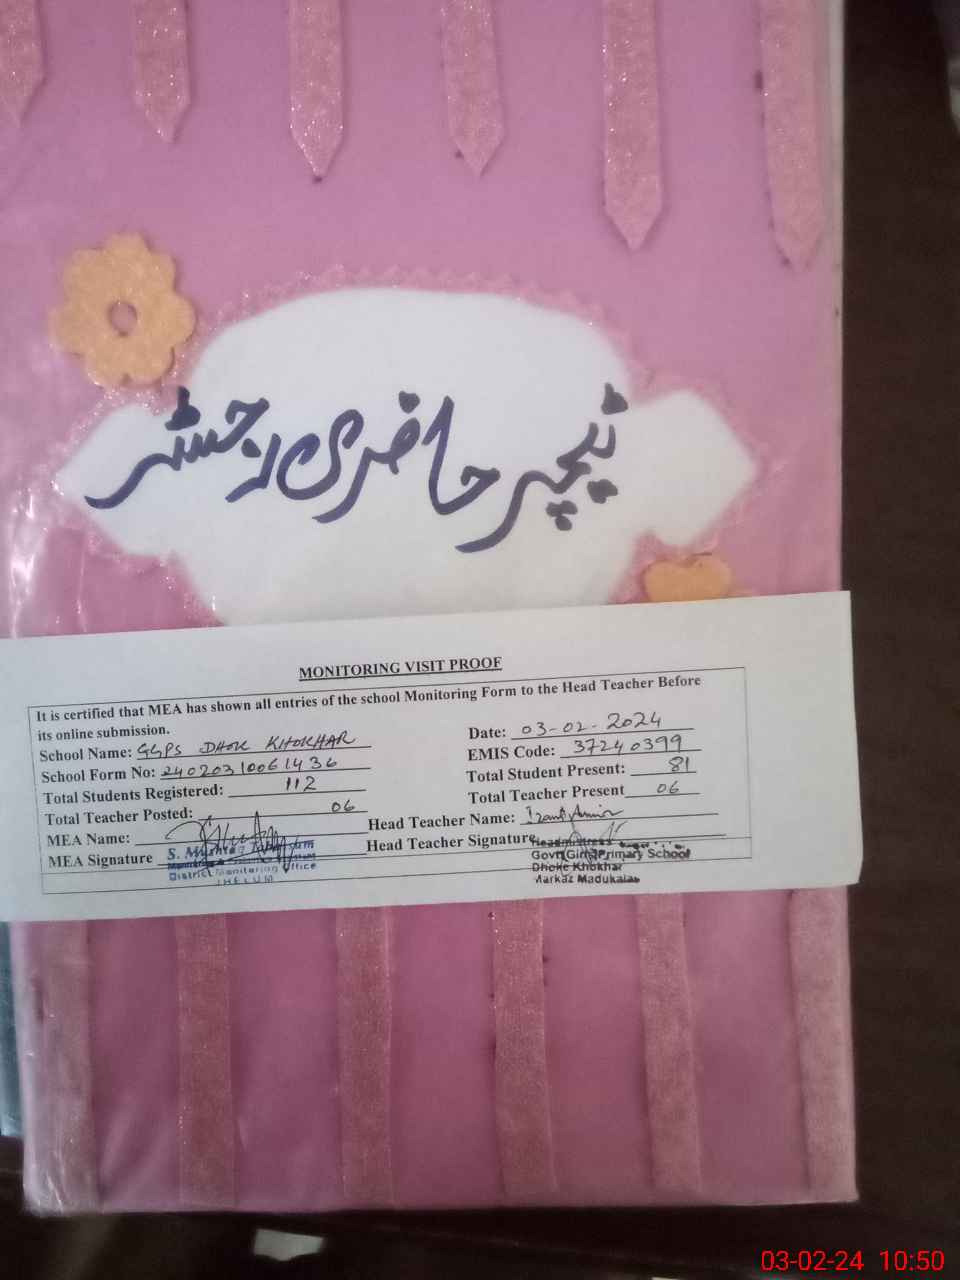 ٹیچر حاضری رجسٹر
MONITORING VISIT PROOF
It is certified that MEA has shown all entries of the school Monitoring Form to the Head Teacher Before
its online submission.
School Name: GGPS DHOK KHOKHAR
Date: 03-02-2024
School Form No: 24020310061436
EMIS Code: 37240399
Total Students Registered: 112
Total Student Present: 81
Total Teacher Posted: 06
Total Teacher Present 06
MEA Name:
Head Teacher Name:
MEA Signature
Head Teacher Signature
S. Mushtaq
District Monitoring Office
JHELUM
Headmistress
Govt Girls Primary School
Dhoke Khokhar
Markaz Madukalas
03-02-24 10:50